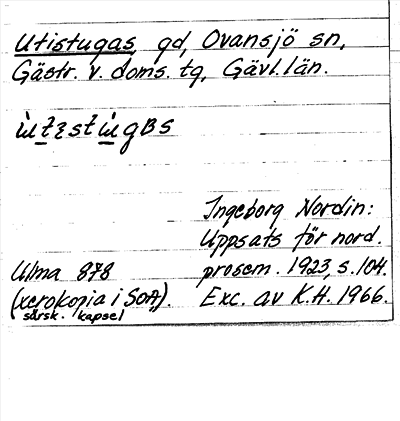 Utistugas, gd, Ovansjö sn,
Gästr. v. doms. tg, Gävl. län.
Ingeborg Nordin:
Uppsats för nord.
prosem. 1923, s. 104.
Exc. av K.H. 1966.
Ulma 878
(xerokopia i SOA).
särsk. kapsel